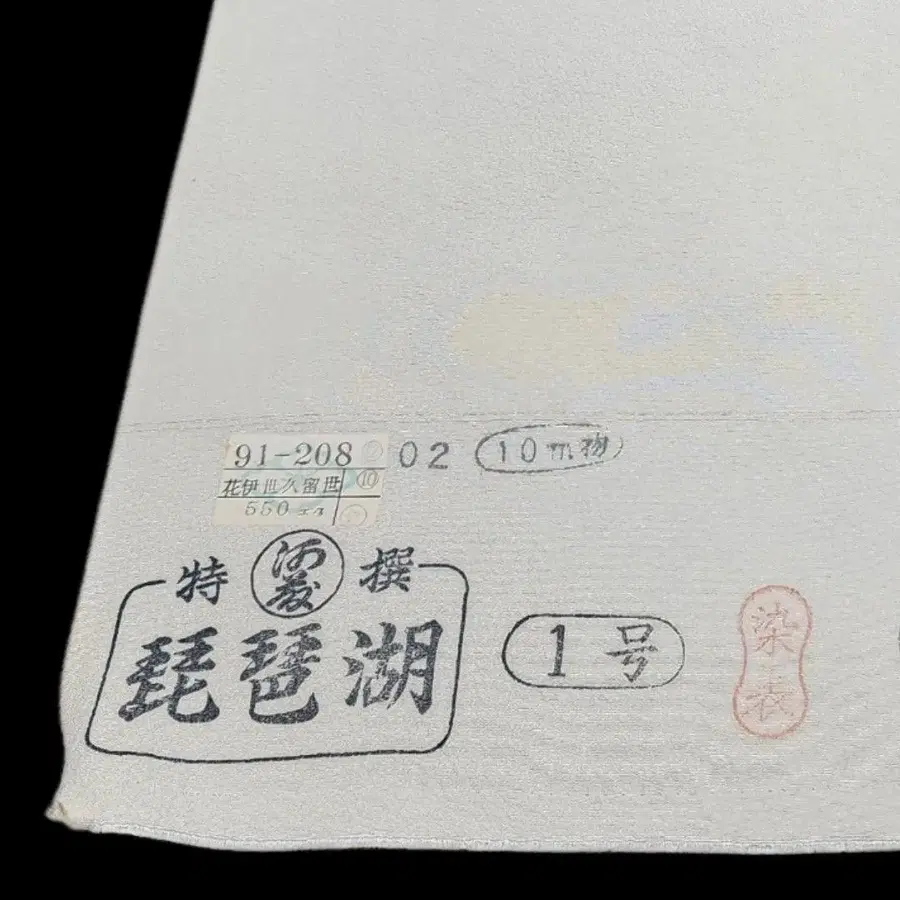 91-208 02 10m物
花伊世久留世 10
550
特 撰
琵琶湖
1号
染表